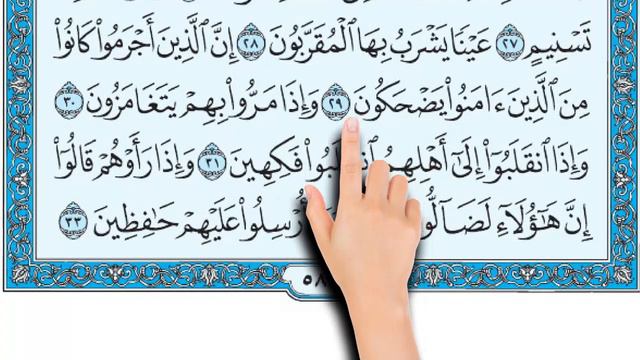 تَسْنِيمٍ ٢٧ عَيْنًا يَشْرَبُ بِهَا ٱلْمُقَرَّبُونَ ٢٨ إِنَّ ٱلَّذِينَ أَجْرَمُوا۟ كَانُوا۟
مِنَ ٱلَّذِينَ ءَامَنُوا۟ يَضْحَكُونَ ٢٩ وَإِذَا مَرُّوا۟ بِهِمْ يَتَغَامَزُونَ ٣٠
وَإِذَا ٱنقَلَبُوٓا۟ إِلَىٰٓ أَهْلِهِمُ فَكِهِينَ ٣١ وَإِذَا رَأَوْهُمْ قَالُوٓا۟
إِنَّ هَٰٓؤُلَآءِ أُرْسِلُوا۟ عَلَيْهِمْ حَٰفِظِينَ ٣٣